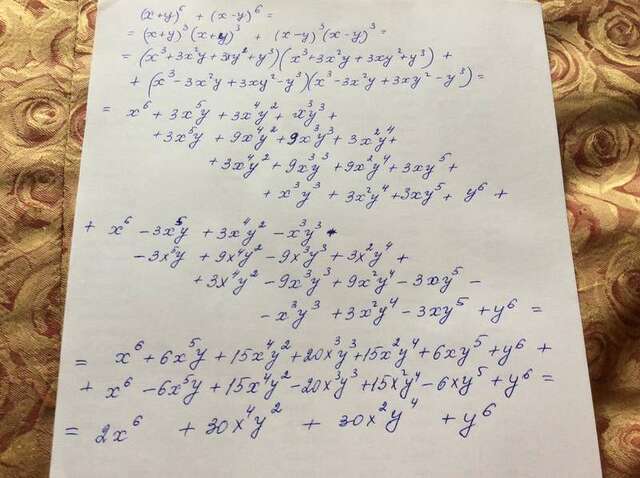 (x+y)⁶ + (x-y)⁶ =
= (x+y)³(x+y)³ + (x-y)³(x-y)³ =
= (x³+3x²y+3xy²+y³)(x³+3x²y+3xy²+y³) +
+ (x³-3x²y+3xy²-y³)(x³-3x²y+3xy²-y³) =
= x⁶ + 3x⁵y + 3x⁴y² + x³y³ +
+3x⁵y + 9x⁴y² + 9x³y³ + 3x²y⁴ +
+3x⁴y² + 9x³y³ + 9x²y⁴ + 3xy⁵ +
+ x³y³ + 3x²y⁴ + 3xy⁵ + y⁶ +
+ x⁶ - 3x⁵y + 3x⁴y² - x³y³ -
- 3x⁵y + 9x⁴y² - 9x³y³ + 3x²y⁴ +
+ 3x⁴y² - 9x³y³ + 9x²y⁴ - 3xy⁵ -
- x³y³ + 3x²y⁴ - 3xy⁵ + y⁶ =
= x⁶ + 6x⁵y + 15x⁴y² + 20x³y³ + 15x²y⁴ + 6xy⁵ + y⁶ +
+ x⁶ - 6x⁵y + 15x⁴y² - 20x³y³ + 15x²y⁴ - 6xy⁵ + y⁶ =
= 2x⁶ + 30x⁴y² + 30x²y⁴ + y⁶